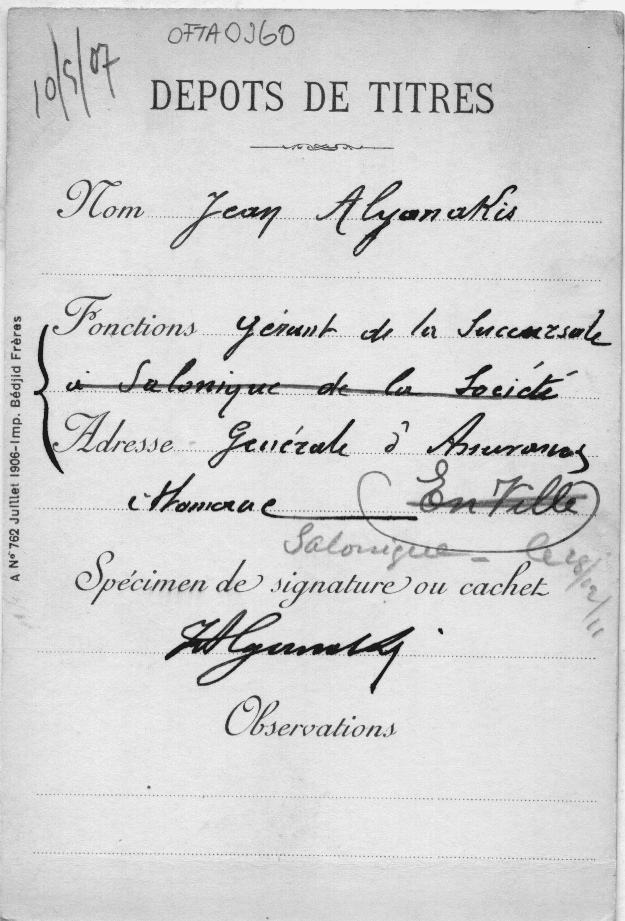 OFTA0360
10/5/07
DEPOTS DE TITRES
Nom Jean Alyanakis
Fonctions Gérant de la Succursale
à Salonique de la Société
Adresse Générale d'Assurances
Ottomane En Ville
Salonique - le 28/12/11
Spécimen de signature ou cachet
Observations
A N° 762 Juillet 1906-Imp. Bédjid Frères